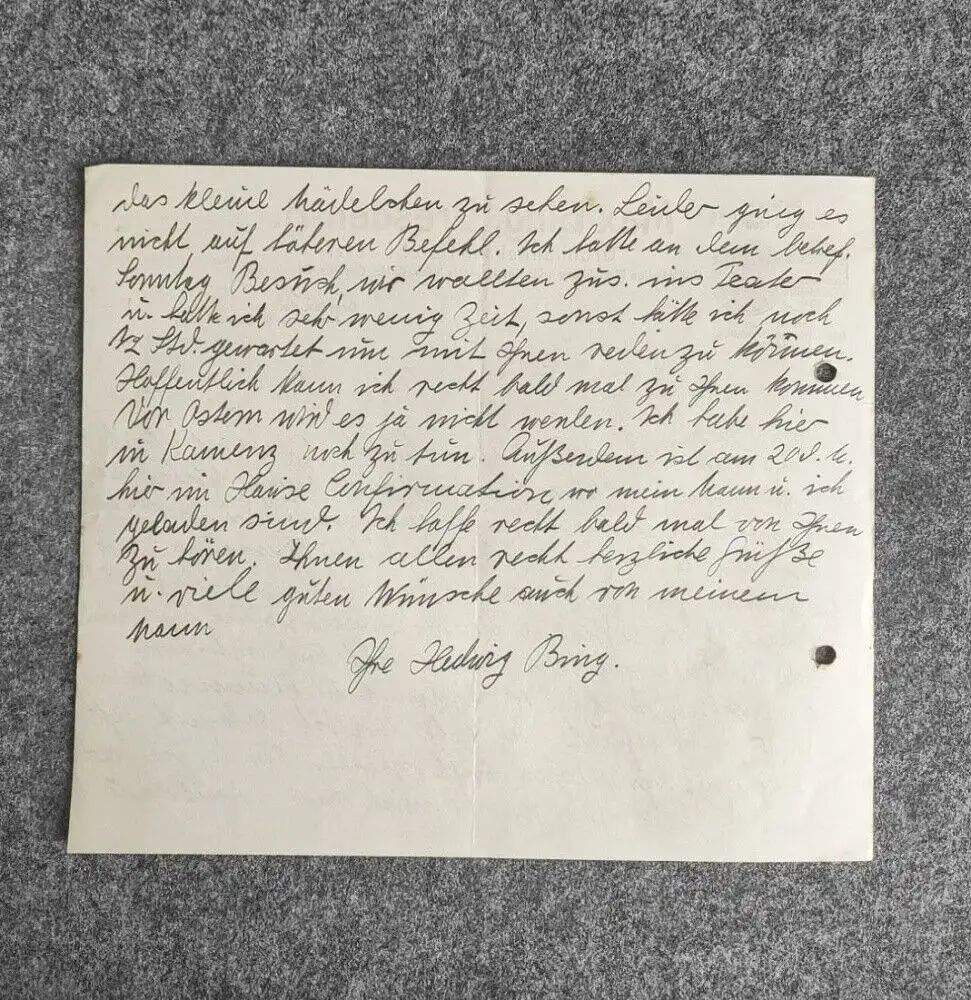 das kleine Mädelchen zu sehen. Leider ging es
nicht auf höheren Befehl. Ich hatte an dem betref.
Sonntag Besuch, wir wollten zus. ins Teater
u. hatte ich sehr wenig Zeit, sonst hätte ich noch
½ Std. gewartet um mit Ihnen reden zu können.
Hoffentlich kann ich recht bald mal zu Ihnen kommen
Vor Ostern wird es ja nicht werden. Ich habe hier
in Kamenz noch zu tun. Außerdem ist am 20 d. M.
hier im Hause Confirmation, wo mein Mann u. ich
geladen sind. Ich hoffe recht bald mal von Ihnen
zu hören. Ihnen allen recht herzliche Grüße
u. viele guten Wünsche auch von meinem
Mann
Ihre Hedwig Bing.